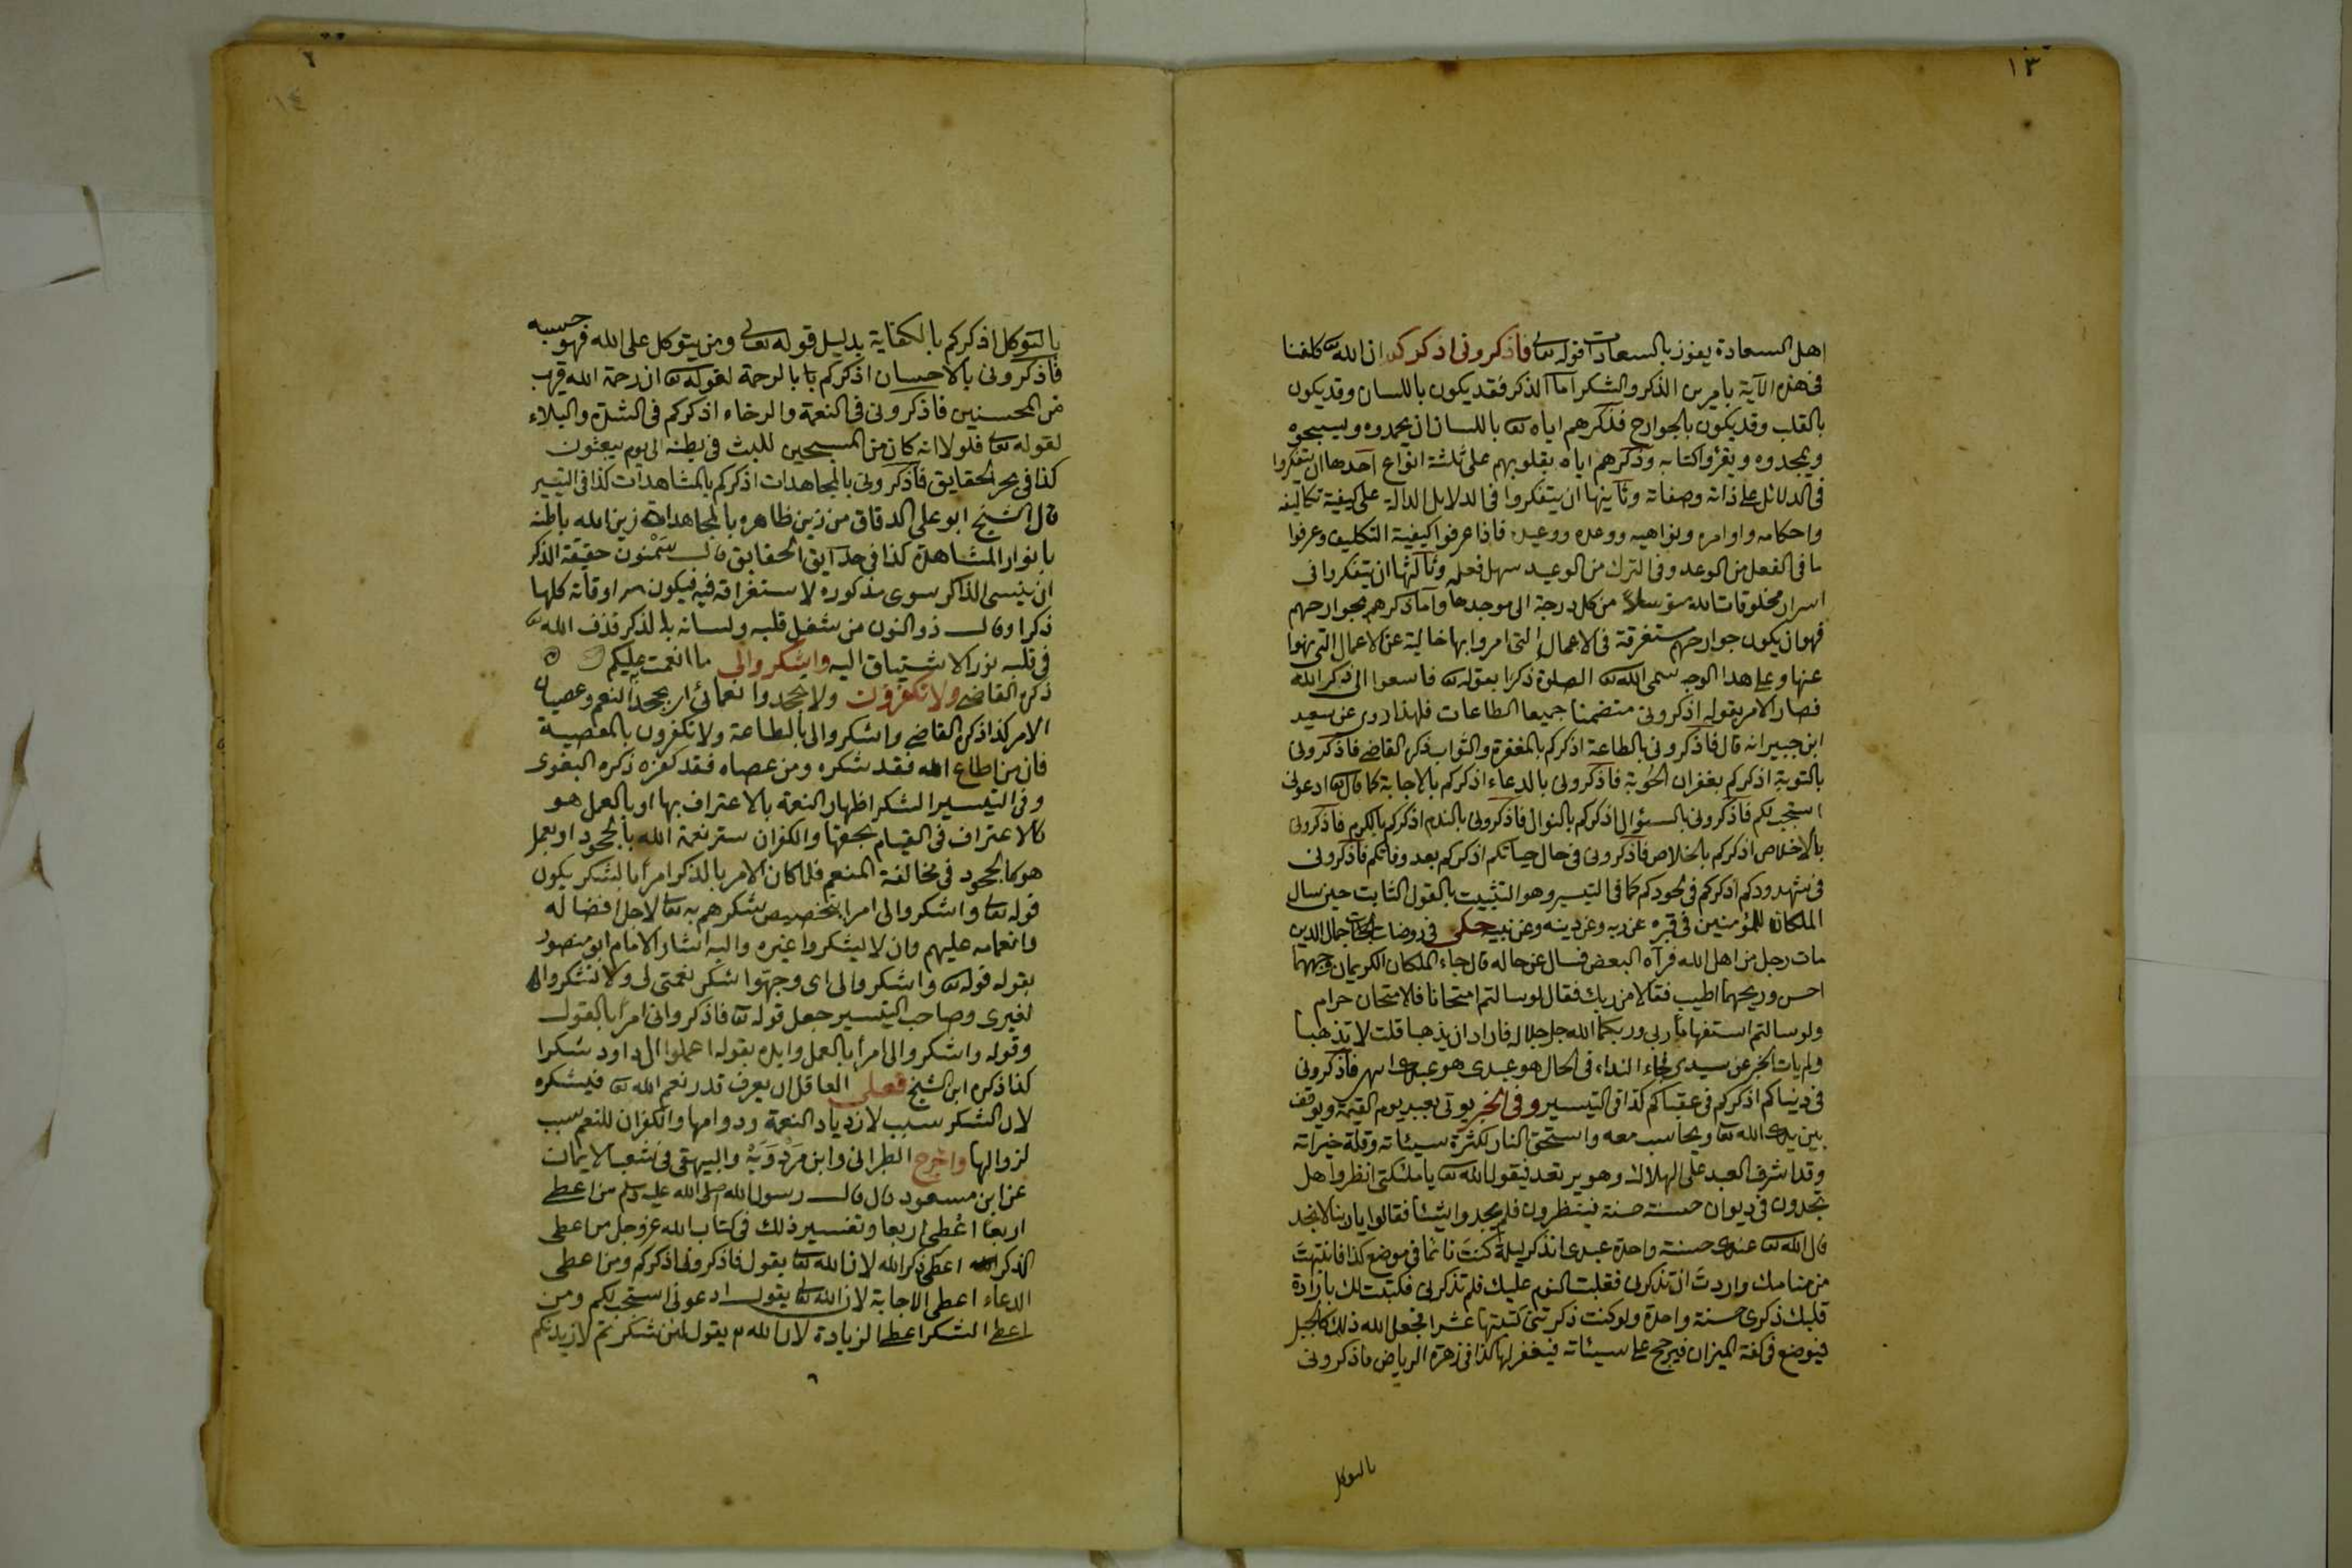 ١٣
اهل السعادة يفوز بالسعادات قوله تعا فاذكرونى اذكركم ان الله تع كلفنا
فى هذه الآية بامرين الذكر والشكر اما الذكر فقد يكون باللسان وقد يكون
بالقلب وقد يكون بالجوارح فذكرهم اياه تع باللسان ان يحمدوه ويسبحوه
ويمجدوه ويقرؤا كتابه وذكرهم اياه بقلوبهم على ثلثة انواع احدها ان يتفكروا
فى الدلائل على ذاته وصفاته وثانيها ان يتفكروا فى الدلايل الدالة على كيفية تكاليفه
واحكامه واوامره ونواهيه ووعده ووعيده فاذا عرفوا كيفية التكليف وعرفوا
ما فى الفعل من الوعد وفى الترك من الوعيد سهل فعله وثالثها ان يتفكروا فى
اسرار مخلوقات الله متوسلا من كل درجة الى موجدها واما ذكرهم بجوارحهم
فهو ان يكون جوارحهم مستغرقة فى الاعمال التى امروا بها خالية عن الاعمال التى نهوا
عنها وعلى هذا الوجه سمى الله تع الصلوة ذكرا بقوله تع فاسعوا الى ذكر الله
فصار الامر بقوله اذكرونى متضمنا جميع الطاعات فلهذا روى عن سعيد
ابن جبير انه قال فاذكرونى بالطاعة اذكركم بالمغفرة والثواب ذكره القاضى فاذكرونى
بالتوبة اذكركم بغفران الحوبة فاذكرونى بالدعاء اذكركم بالاجابة كما قال تع ادعونى
استجب لكم فاذكرونى بالسؤال اذكركم بالنوال فاذكرونى بالندم اذكركم بالكرم فاذكرونى
بالاخلاص اذكركم بالخلاص فاذكرونى فى حال حياتكم اذكركم بعد وفاتكم فاذكرونى
فى شهدودكم اذكركم فى لحودكم كما فى التيسير وهو التثبيت بالقول الثابت حين سال
الملكان للمؤمنين فى قبره عن ربه وعن دينه وعن نبيه حكى فى روضات الجنات جمال الدين
مات رجل من اهل الله فرآه البعض فسال عن حاله قال جاء الملكان الكريمان وجههما
احسن وريحهما اطيب فقالا من ربك فقال لو سالتم امتحانا فالامتحان حرام
ولو سالتم استفهاما ربى وربكما الله جل جلاله فاراد ان يذهبا قلت لا تذهبا
ولم يات الخبر عن سيدى فجاء النداء فى الحال هو عبدى هو عبدى فاذكرونى
فى دنياكم اذكركم فى عقباكم كذا فى التيسير وفى الخبر يوتى بعبد يوم القيمة ويوقف
بين يدى الله تعا ويحاسب معه واستحق النار لكثرة سيئاته وقلة خيراته
وقد اشرف العبد على الهلاك وهو يرتعد فيقول الله تع يا ملئكتى انظروا هل
تجدون فى ديوان حسنته حسنة فينظرون فلم يجدوا شيئا فقالوا يا ربنا لا نجد
قال الله تع عندى حسنة واحدة عبدى اتذكر ليلة كنت نائما فى موضع كذا فانتبهت
من منامك واردت ان تذكرنى فغلبت النوم عليك فلم تذكرنى فكتبت لك بارادة
قلبك ذكرى حسنة واحدة ولو كنت ذكرتنى كتبتها عشرا فجعل الله ذلك كالجبل
فيوضع فى كفة الميزان فيرجح على سيئاته فيغفر لها كذا فى زهرة الرياض فاذكرونى
بالتوكل
١٤
بالتوكل اذكركم بالكفاية بدليل قوله تعالى ومن يتوكل على الله فهو حسبه
فاذكرونى بالاحسان اذكركم با بالرحمة لقوله تع ان رحمة الله قريب
من المحسنين فاذكرونى فى النعمة والرخاء اذكركم فى الشدة والبلاء
لقوله تعا فلولا انه كان من المسبحين للبث فى بطنه الى يوم يبعثون
كذا فى بحر الحقايق فاذكرونى بالمجاهدات اذكركم بالمشاهدات كذا فى التيسير
قال الشيخ ابو على الدقاق من زين ظاهره بالمجاهدات زين الله باطنه
بانوار المشاهدة كذا فى حدايق الحقايق قال سمنون حقيقة الذكر
ان ينسى الذاكر سوى مذكوره لاستغراقه فيه فيكون اوقاته كلها
ذكرا وقال ذو النون من شغل قلبه ولسانه بالذكر قذف الله تع
فى قلبه نور الاشتياق اليه واشكروا لى ما انعمت عليكم
ذكره القاضى ولا تكفرون ولا تجحدوا نعمائى اى بجحد النعم وعصيان
الامر كذا ذكره القاضى واشكروا لى بالطاعة ولا تكفرون بالمعصية
فان من اطاع الله فقد شكره ومن عصاه فقد كفره ذكره البغوى
وفى التيسير الشكر اظهار النعمة بالاعتراف بها او بالعمل هو
كالاعتراف فى القيام بحقها والكفران ستر نعمة الله بالجحود او بعمل
هو كالجحود فى مخالفة المنعم فلما كان الامر بالذكر امرا بالشكر يكون
قوله تعا واشكروا لى امرا بتخصيص شكرهم به تعا لاجل افضاله
وانعامه عليهم وان لا يشكروا غيره واليه اشار الامام ابو منصور
بقوله قوله تع واشكروا لى اى وجهوا شكر نعمتى لى ولا تشكروا
لغيرى وصاحب التيسير جعل قوله تع فاذكرونى امرا بالقول
وقوله واشكروا لى امرا بالعمل وايده بقوله اعملوا ال داود شكرا
كذا ذكره ابن الشيخ فعلى العاقل ان يعرف قدر نعم الله تع فيشكره
لان الشكر سبب لازدياد النعمة ودوامها والكفران للنعم سبب
لزوالها واخرج الطبرانى وابن مردويه والبيهقى فى شعب الايمان
عن ابن مسعود قال قال رسول الله صلى الله عليه وسلم من اعطى
اربعا اعطى اربعا وتفسير ذلك فى كتاب الله عز وجل من اعطى
الذكر اعطى ذكر الله لان الله تعا يقول فاذكرونى اذكركم ومن اعطى
الدعاء اعطى الاجابة لان الله تعا يقول ادعونى استجب لكم ومن
اعطى الشكر اعطى الزيادة لان الله يقول لئن شكرتم لازيدنكم